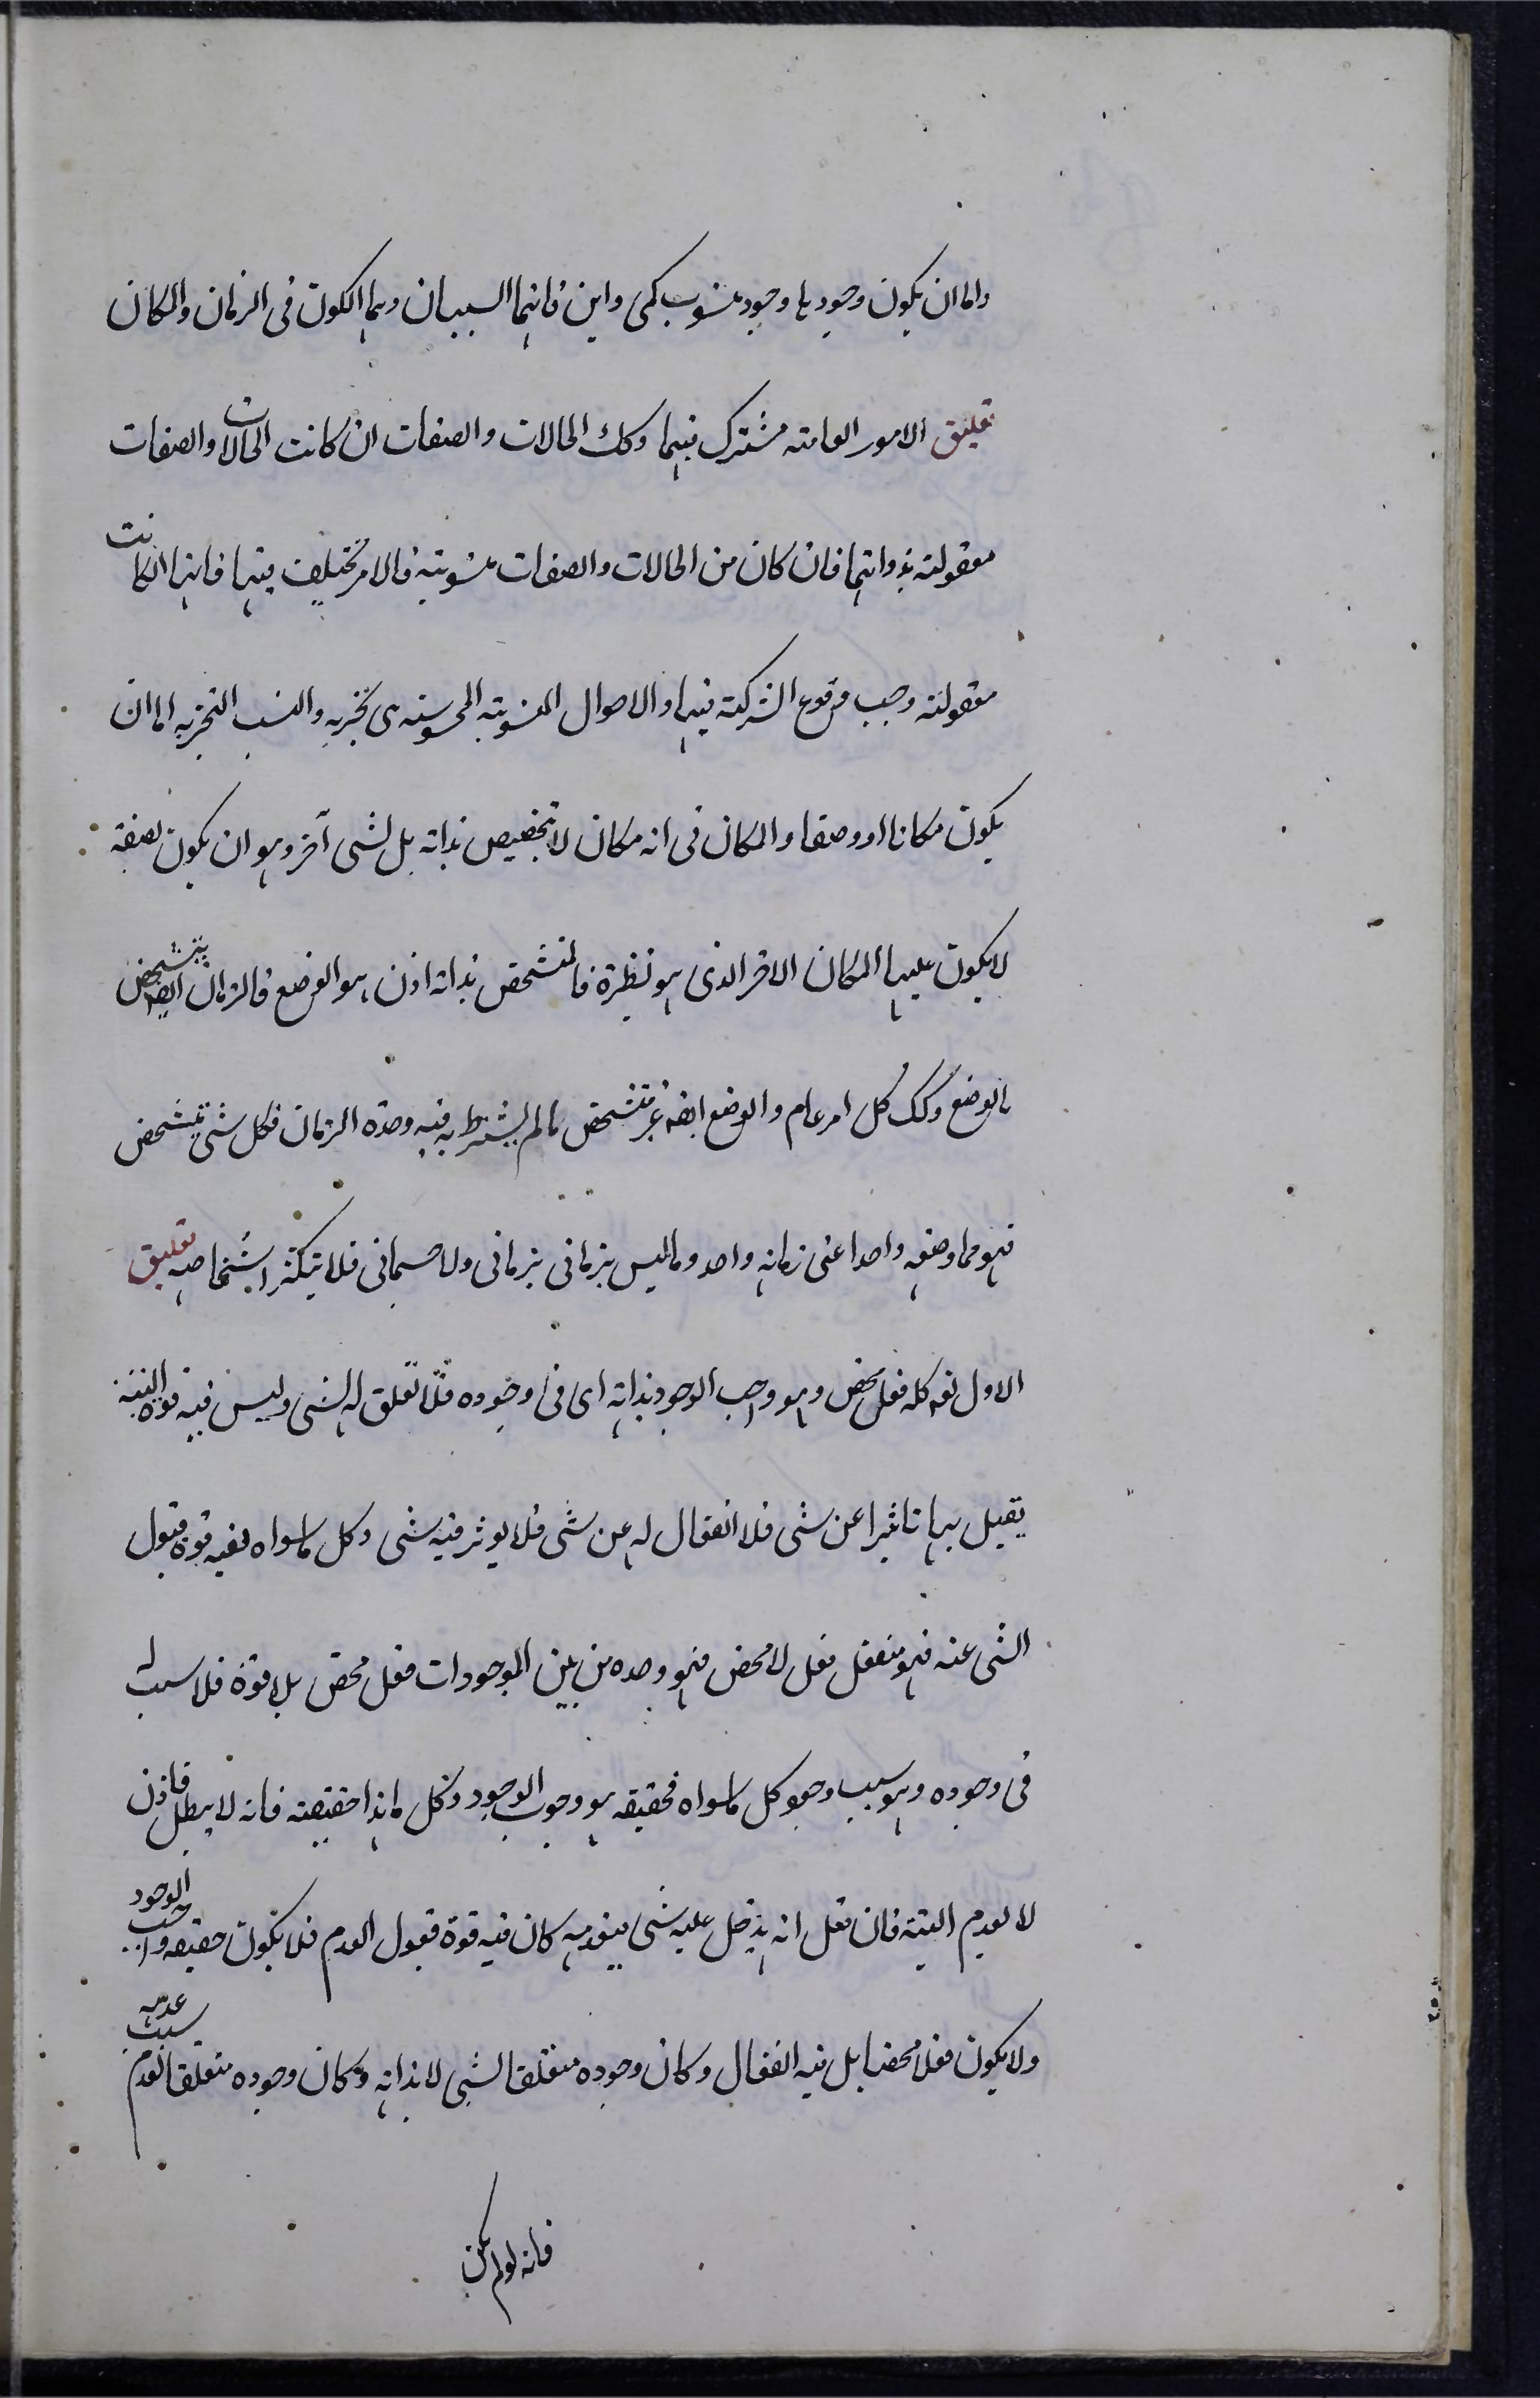 واما ان يكون وجودها وجود منسوب كمى واين فانهما السببان وهما الكون فى الزمان والمكان
تعليق الامور العامته مشترك فيها وكك الحالات والصفات ان كانت الحالات والصفات
معقولته بذواتها فان كان من الحالات والصفات منسوبته فالامر يختلف فيها فانها ان كانت
معقولته وجب وقوع الشركته فيها والاحوال المنسوبته المحسوسته هى تجزيه والنسب التجزيه اما ان
يكون مكانا او وصفا والمكان فى انه مكان لا تخصيص بذاته بل لشى آخر وهو ان يكون بصفته
لا يكون عليها المكان الاخر الذى هو نظيره فالمتشخص بذاته اذن هو الوضع فالزمان ايضا يتشخص
بالوضع وكك كل امر عام والوضع ايضا غير متشخص ما لم يشترط به فيه وحدة الزمان فكل شى يتشخص
فهو مما وضعه واحدا عنى زمانه واحد وما ليس بزمانى بزمانى ولا جسمانى فلا يتكثر اشخاصه تعليق
الاول تع كله فعل محض وهو واجب الوجود بذاته اى فى وجوده فلا تعلق له لشى وليس فيه قوة البتة
يقبل بها تاثيرا عن شى فلا انفعال له عن شى فلا يوثر فيه شى وكل ماسواه ففيه قوة قبول
الشى عنه فهو منفعل فعل لا محض فهو وحده من بين الموجودات فعل محض بلا قوة فلا سبب له
فى وجوده وهو سبب وجود كل ماسواه فحقيقه هو وجوب الوجود وكل ما هذا حقيقته فانه لا يبطل فاذن
لا لعدم البتة فان فعل انه يدخل عليه شى فيعدمه كان فيه قوة قبول العدم فلا يكون حقيقه واجب الوجود
ولا يكون فعلا محضا بل فيه انفعال وكان وجوده متعلقا لشى لا بذاته وكان وجوده متعلقا لعدم سبب عدمه
فانه لو لم يكن